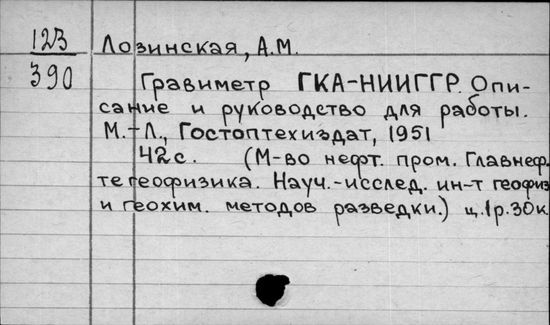 123 Лозинская, А.М.
390 Гравиметр ГКА-НИИГГР. Опи-
сание и руководство для работы.
М.-Л., Гостоптехиздат, 1951
42с. (М-во нефт. пром. Главнеф-
тегеофизика. Науч.-исслед. ин-т геофиз
и геохим. методов разведки.) ц.1р.30к.